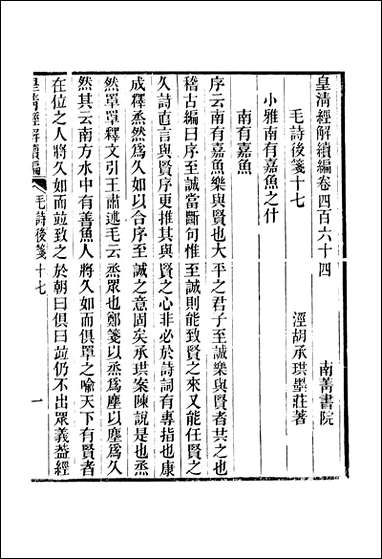 皇清經解續編卷四百六十四　南菁書院
毛詩後箋十七　涇胡承珙墨莊著
小雅南有嘉魚之什
南有嘉魚
序云南有嘉魚樂與賢也大平之君子至誠樂與賢者共之也
稽古編曰序至誠當斷句惟至誠則能致賢之來又能任賢之
久詩直言與賢序更推其與賢之心非必於詩詞有專指也康
成釋烝然爲久如以合序至誠之意固矣承珙案陳說是也烝
然罩罩釋文引王肅述毛云烝眾也鄭箋以烝爲塵以塵爲久
然其云南方水中有善魚人將久如而俱罩之喻天下有賢者
在位之人將久如而竝致之於朝曰俱曰竝仍不出眾義葢經
皇清經解續編　毛詩後箋十七　一